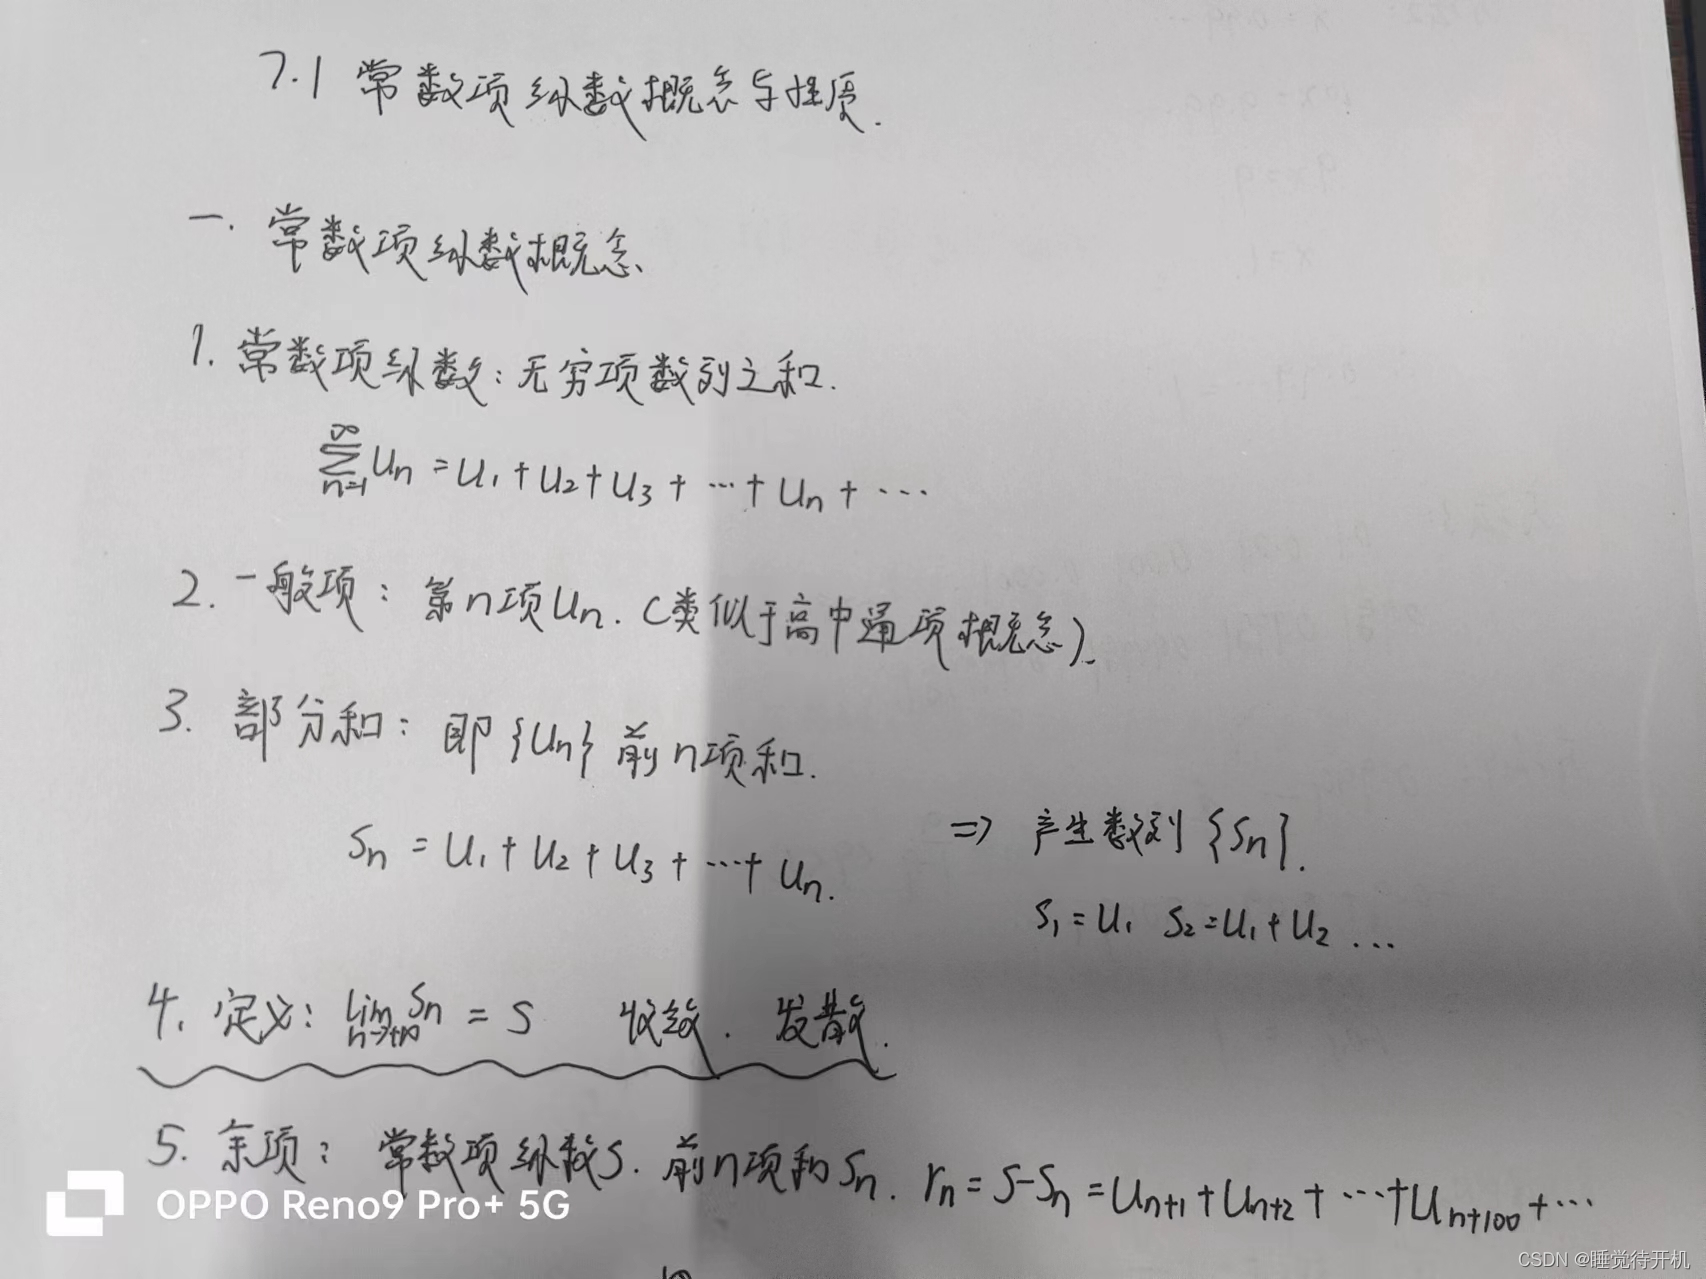 7.1 常数项级数概念与性质.
一. 常数项级数概念.
1. 常数项级数: 无穷项数列之和.
∑_{n=1}^{∞} u_n = u_1 + u_2 + u_3 + … + u_n + …
2. 一般项: 第n项u_n. (类似于高中通项概念).
3. 部分和: 即{u_n}前n项和.
S_n = u_1 + u_2 + u_3 + … + u_n. ⇒ 产生数列{S_n}.
S_1 = u_1 S_2 = u_1 + u_2 …
4. 定义: lim_{n→+∞} S_n = S 收敛. 发散.
5. 余项: 常数项级数S. 前n项和S_n. r_n = S - S_n = u_{n+1} + u_{n+2} + … + u_{n+100} + …
OPPO Reno9 Pro+ 5G
CSDN @睡觉待开机